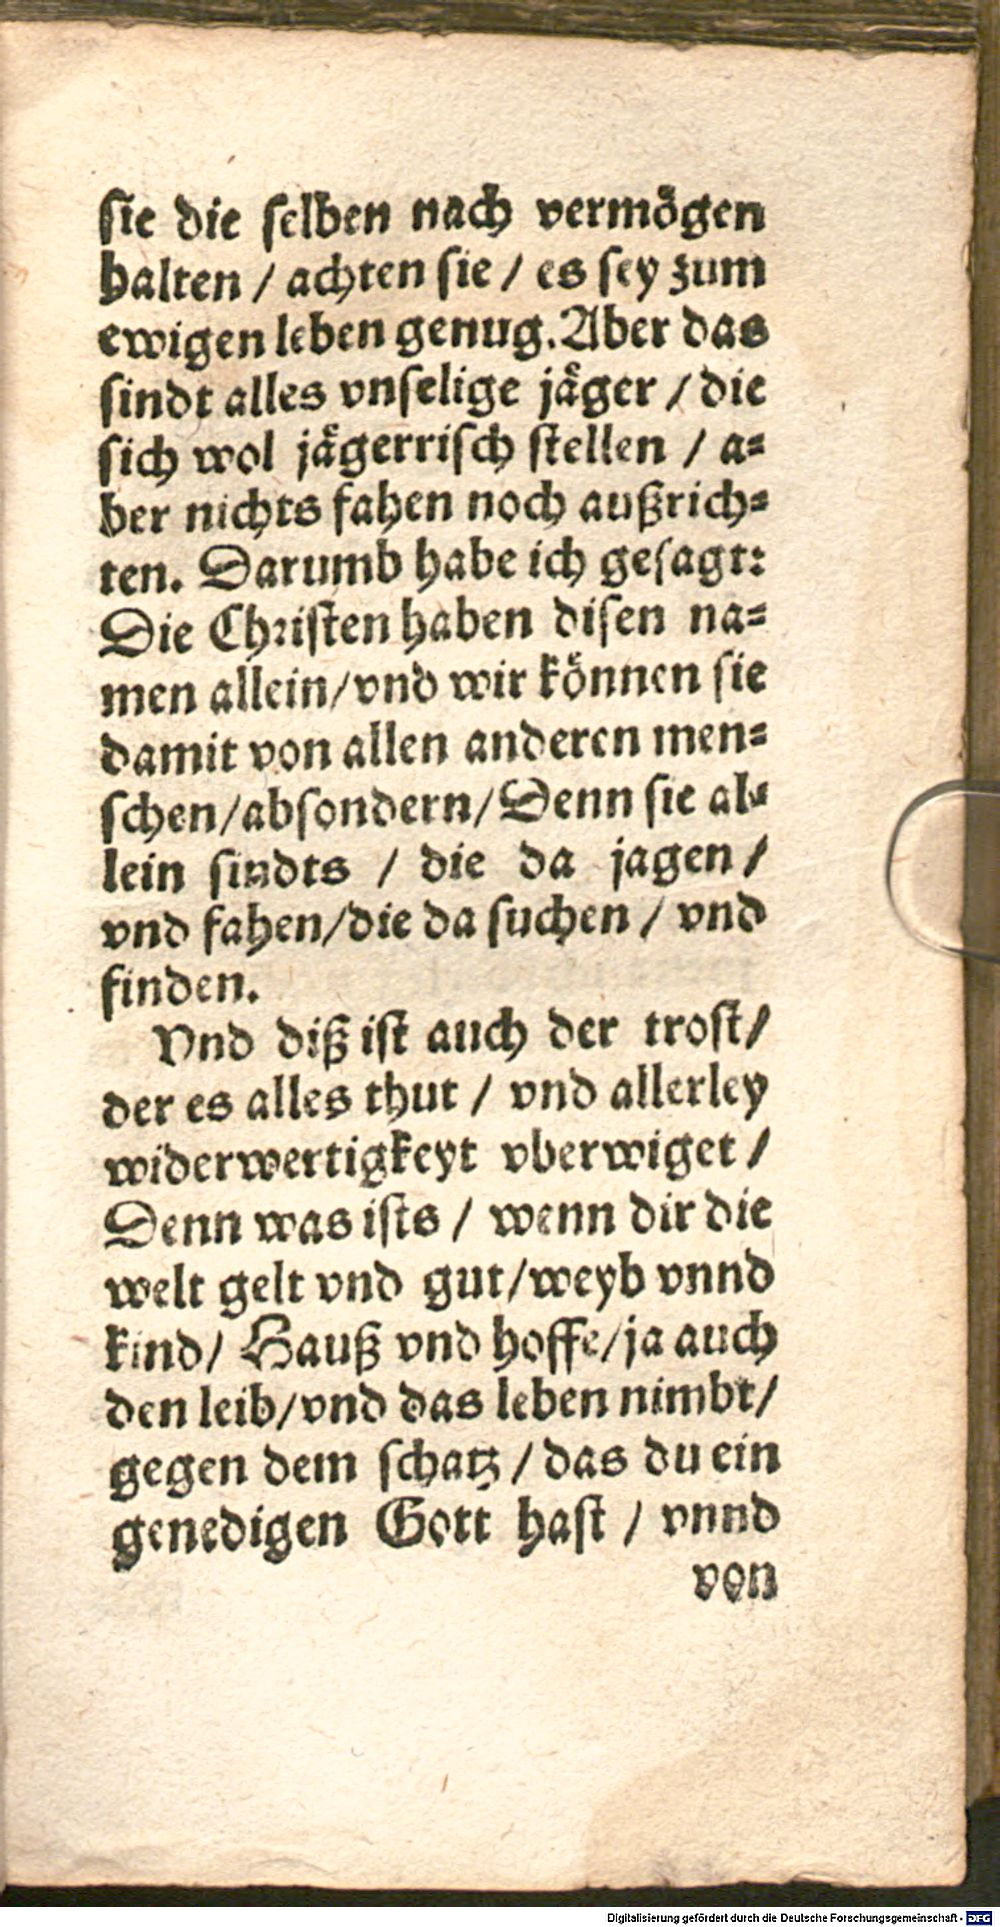 sie die selben nach vermögen
halten / achten sie / es sey zum
ewigen leben genug. Aber das
sindt alles vnselige jäger / die
sich wol jägerrisch stellen / a⸗
ber nichts fahen noch außrich⸗
ten. Darumb habe ich gesagt:
Die Christen haben disen na⸗
men allein/vnd wir können sie
damit von allen anderen men⸗
schen/absondern/Denn sie al⸗
lein sindts / die da jagen/
vnd fahen/die da suchen / vnd
finden.
Vnd diß ist auch der trost/
der es alles thut / vnd allerley
widerwertigkeyt vberwiget /
Denn was ists / wenn dir die
welt gelt vnd gut/weyb vnnd
kind/ Hauß vnd hoffe/ja auch
den leib/vnd das leben nimbt/
gegen dem schatz / das du ein
genedigen Gott hast / vnnd
von
Digitalisierung gefördert durch die Deutsche Forschungsgemeinschaft - DFG